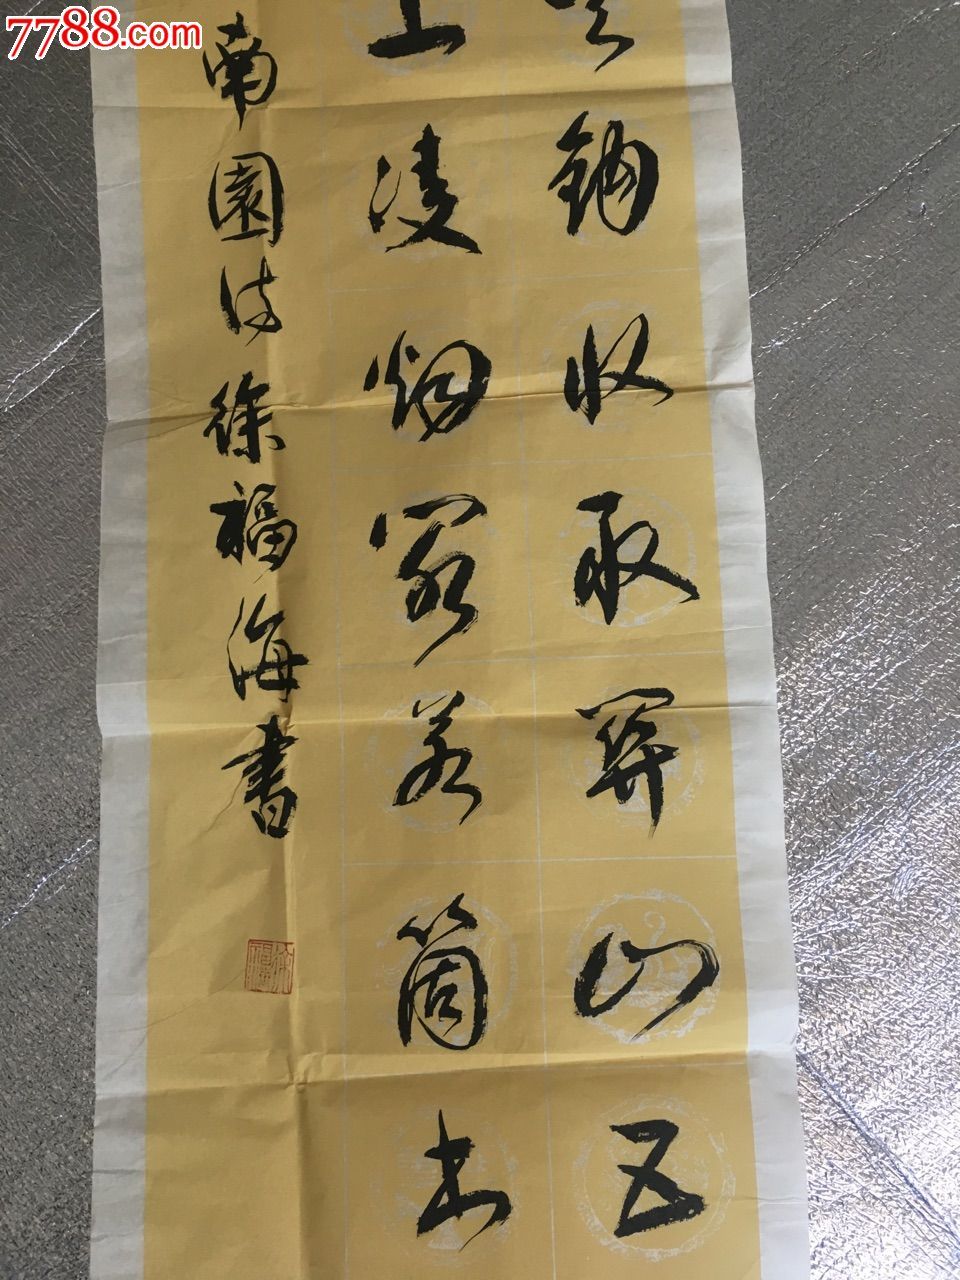 7788.com
鈎收取関山五
上凌烟閣若箇书
南園诗徐福海書